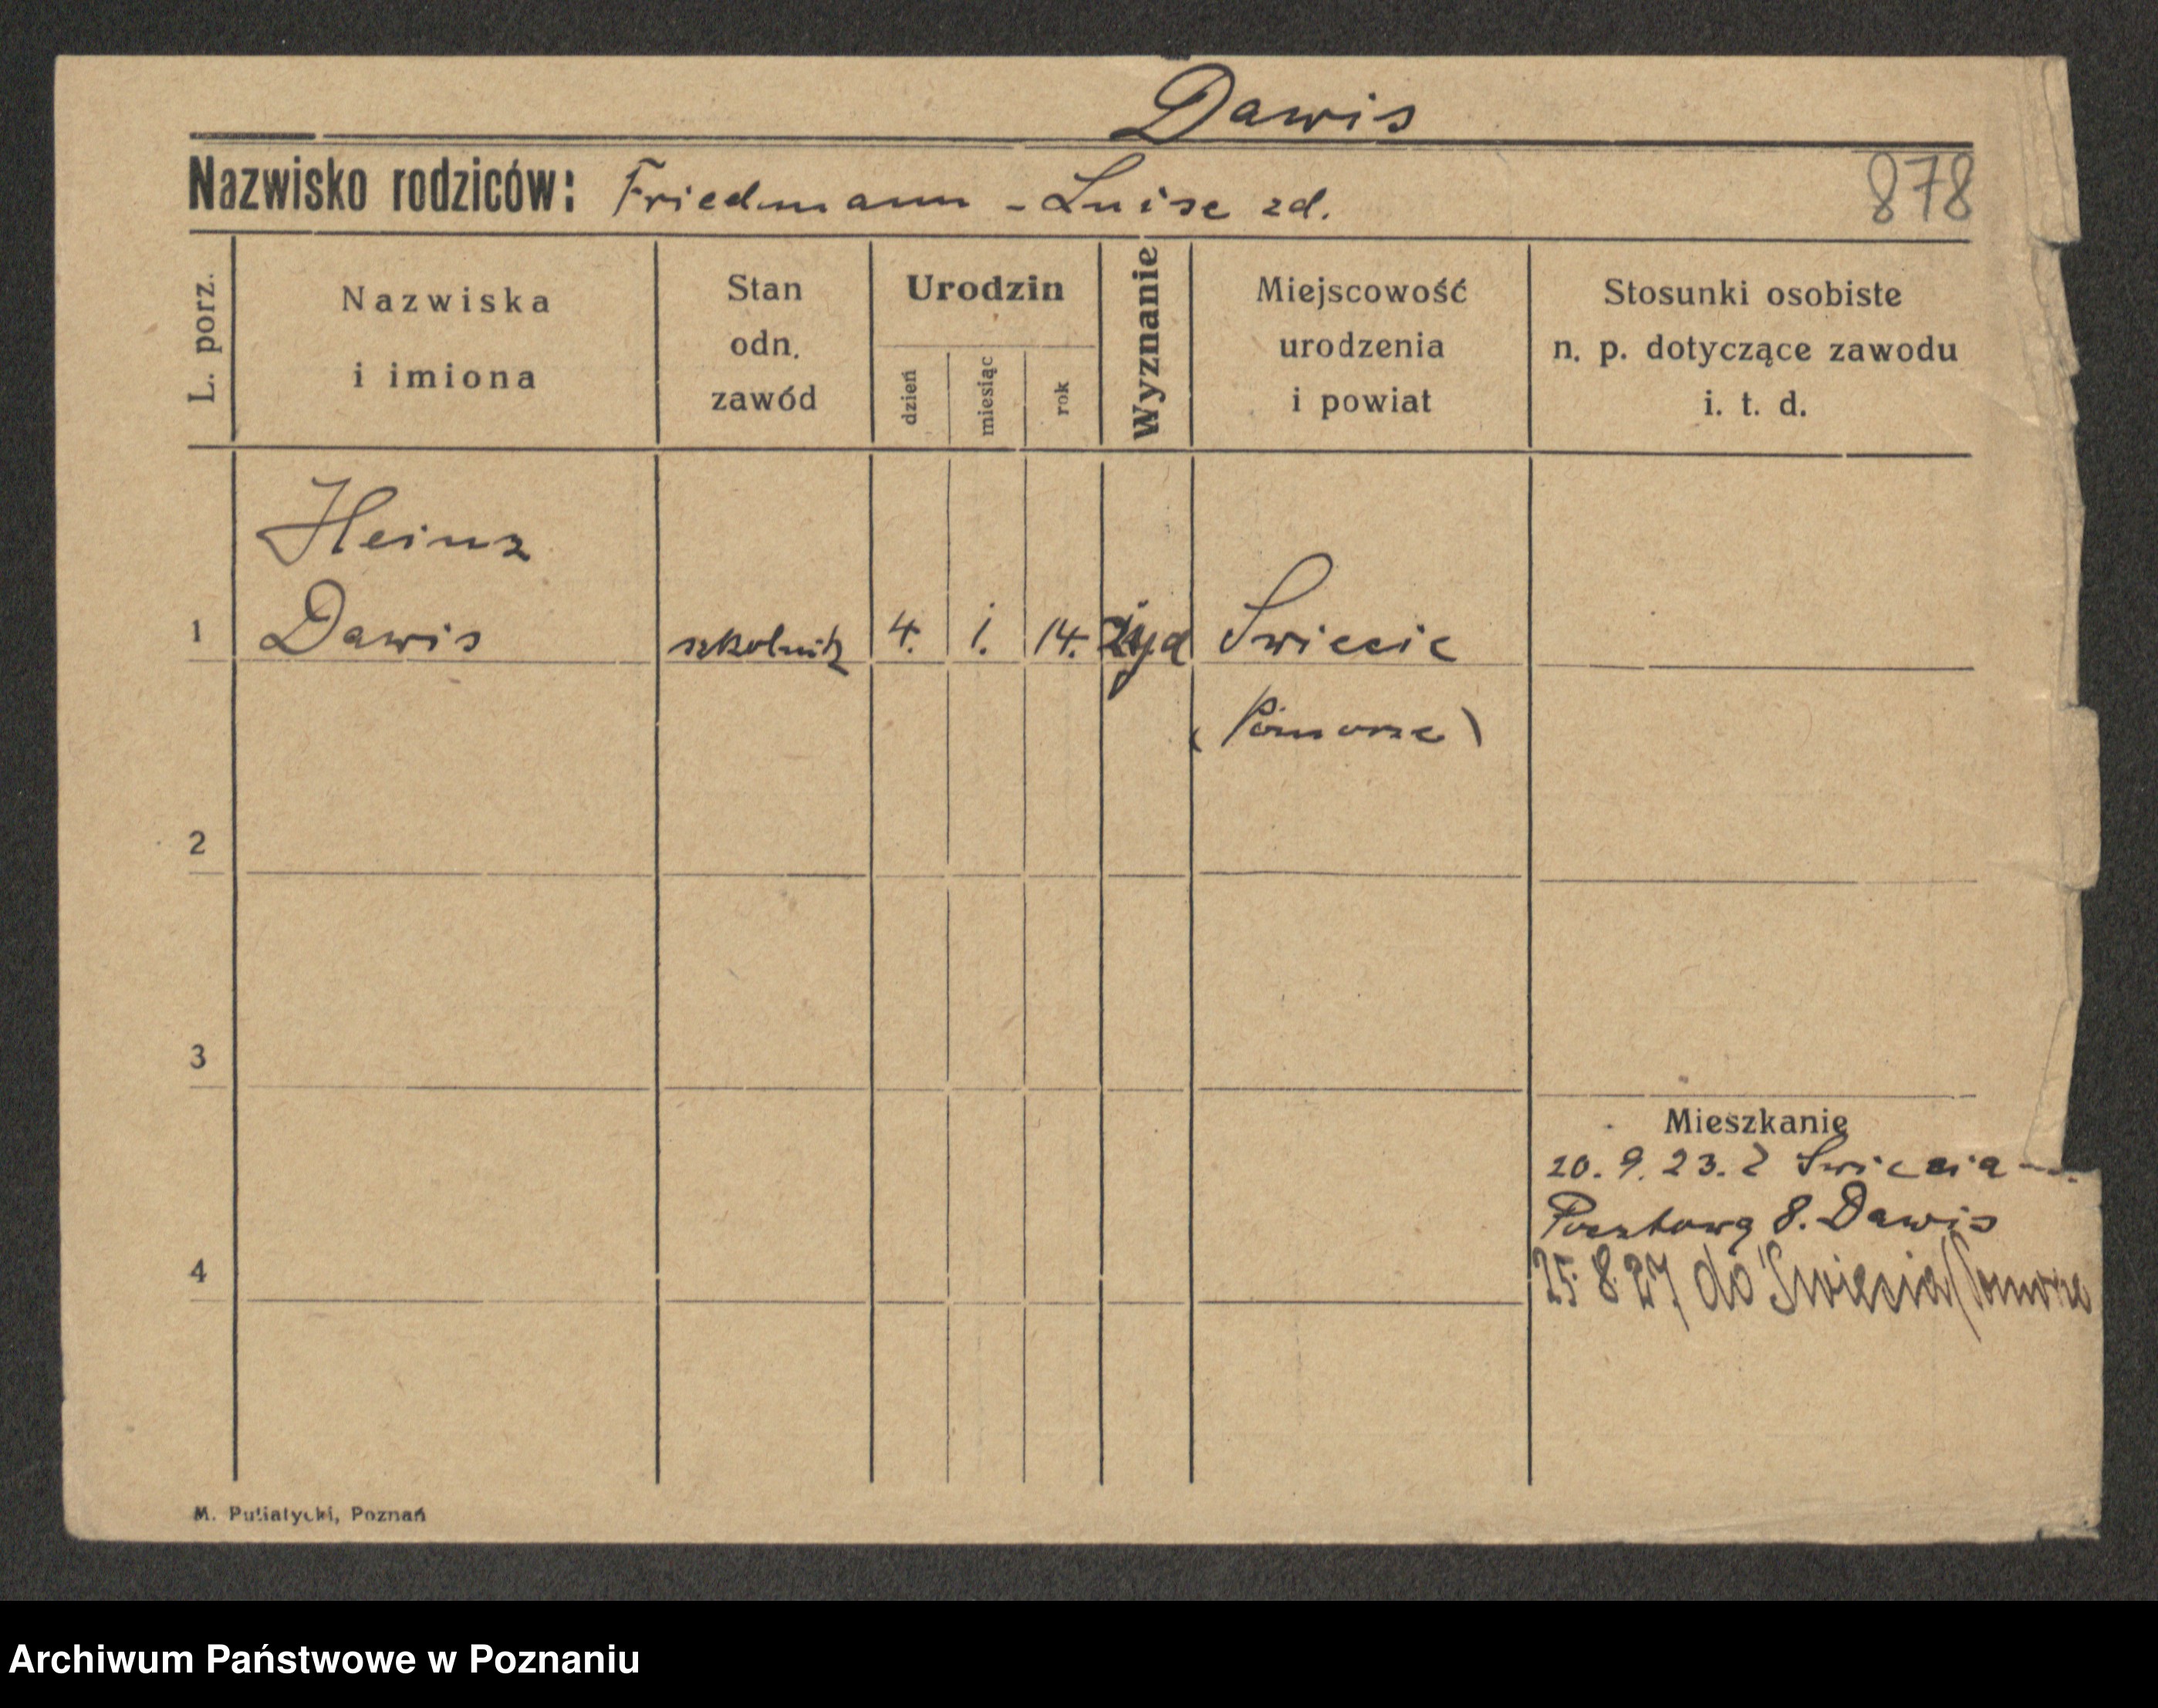 Dawis
Nazwisko rodziców: Friedmann - Luise zd.
878
L. porz.
Nazwiska
i imiona
Stan
odn.
zawód
Urodzin
dzień
miesiąc
rok
Wyznanie
Miejscowość
urodzenia
i powiat
Stosunki osobiste
n. p. dotyczące zawodu
i. t. d.
Heinz
1 Dawis szkolnik 4. 1. 14. żyd Swiecie
(Pomorze)
2
3
Mieszkanie
20. 9. 23. z Swiecia
Pocztowa 8. Dawis
25. 8. 27 do Swiecia/Pomorze
4
M. Putiatycki, Poznań
Archiwum Państwowe w Poznaniu